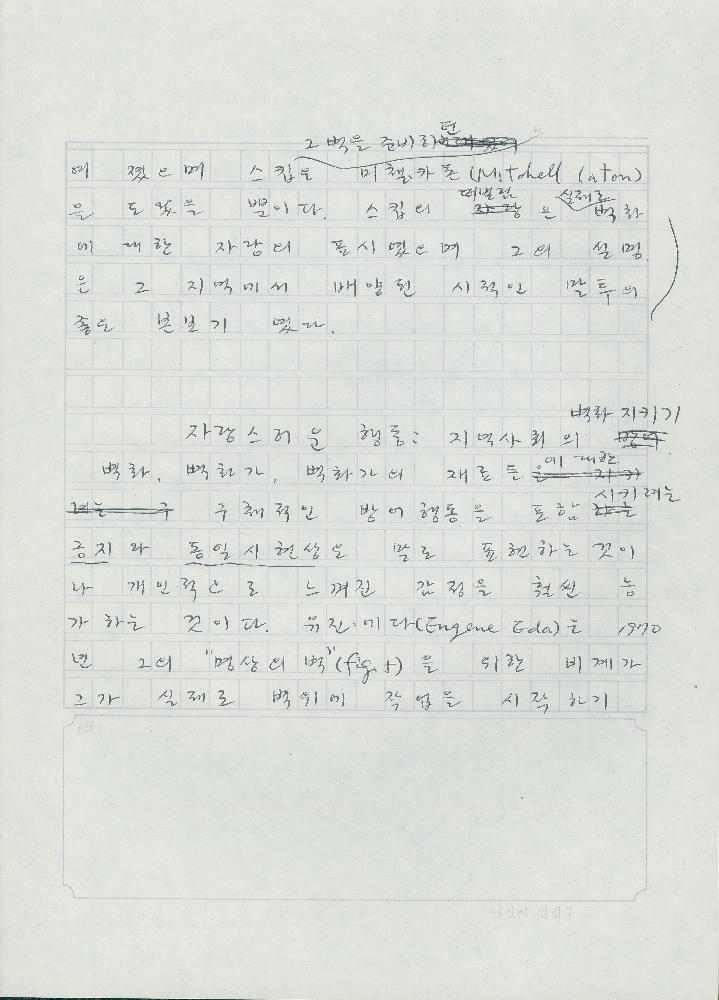 그 벽을 준비하던
여 졌으며 스킵은 미첼·카톤(Mitchell Caton)
을 도왔을 뿐이다. 스킵의 떠벌림은 실제로 벽화
에 대한 자랑의 표시였으며 그의 설명
은 그 지역에서 배양된 시적인 말투의
좋은 본보기 였다.
벽화 지키기
자랑스러운 행동: 지역사회의
벽화, 벽화가, 벽화가의 재료들에 대한
구체적인 방어행동을 포함시키려는
긍지와 동일시현상은 말로 표현하는 것이
나 개인적으로 느껴진 감정을 훨씬 능
가하는 것이다. 유진·에다(Eugene Eda)는 1970
년 그의 "명상의 벽"(fig. ) 을 위한 비계가
그가 실제로 벽위에 작업을 시작하기
미진사 편집부